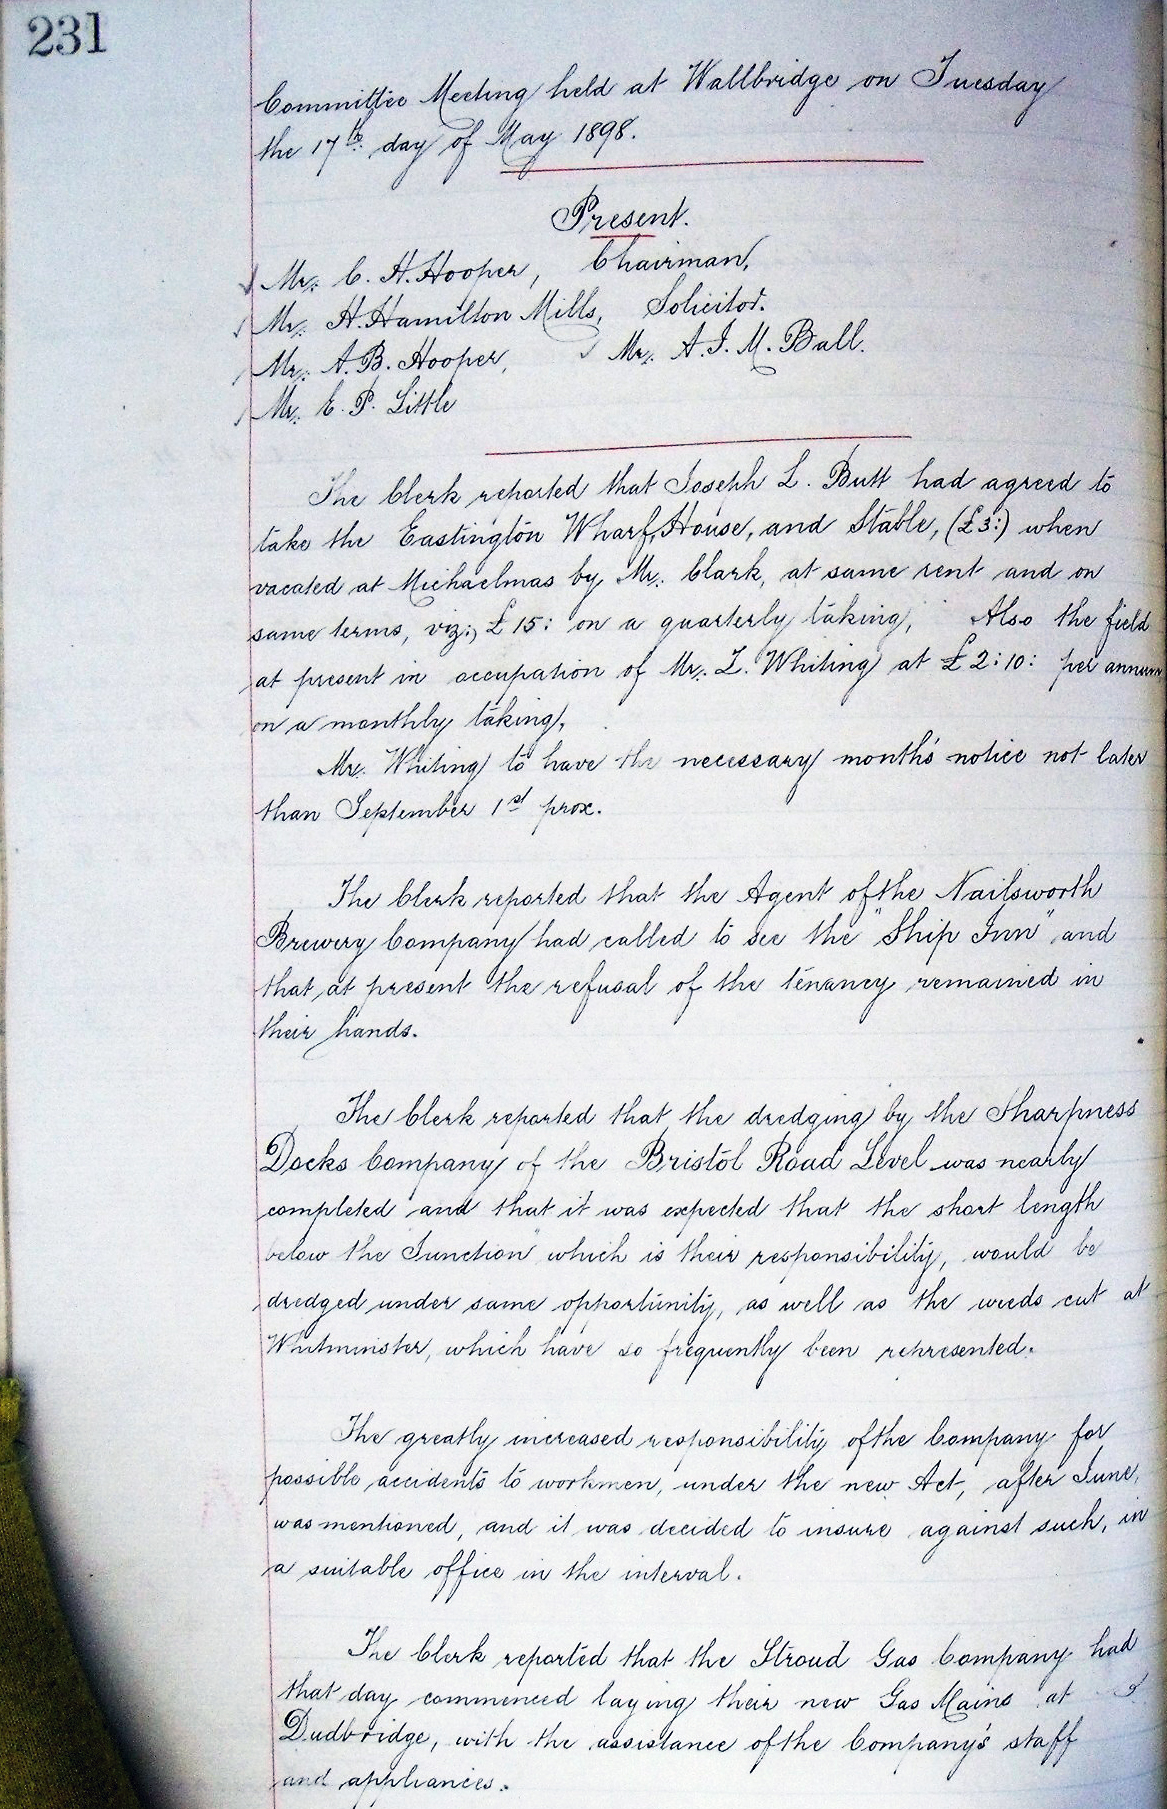 231
Committee Meeting held at Wallbridge on Tuesday
the 17th day of May 1898.
Present.
Mr. C. H. Hooper, Chairman,
Mr. H. Hamilton Mills, Solicitor.
Mr. A. B. Hooper, Mr. A. J. M. Ball.
Mr. E. P. Little
The Clerk reported that Joseph L. Butt had agreed to
take the Eastington Wharf, House, and Stable, (£3:) when
vacated at Michaelmas by Mr. Clark, at same rent and on
same terms, viz:, £15: on a quarterly taking, Also the field
at present in occupation of Mr. Z. Whiting at £2:10: per annum
on a monthly taking.
Mr. Whiting to have the necessary month's notice not later
than September 1st prox.
The Clerk reported that the Agent of the Nailsworth
Brewery Company had called to see the "Ship Inn" and
that at present the refusal of the tenancy remained in
their hands.
The Clerk reported that the dredging by the Sharpness
Docks Company of the Bristol Road Level was nearly
completed and that it was expected that the short length
below the Junction which is their responsibility, would be
dredged under same opportunity, as well as the weeds cut at
Whitminster, which have so frequently been represented.
The greatly increased responsibility of the Company for
possible accidents to workmen, under the new Act, after June,
was mentioned, and it was decided to insure against such, in
a suitable office in the interval.
The Clerk reported that the Stroud Gas Company had
that day commenced laying their new Gas Mains at
Dudbridge, with the assistance of the Company's staff
and appliances.